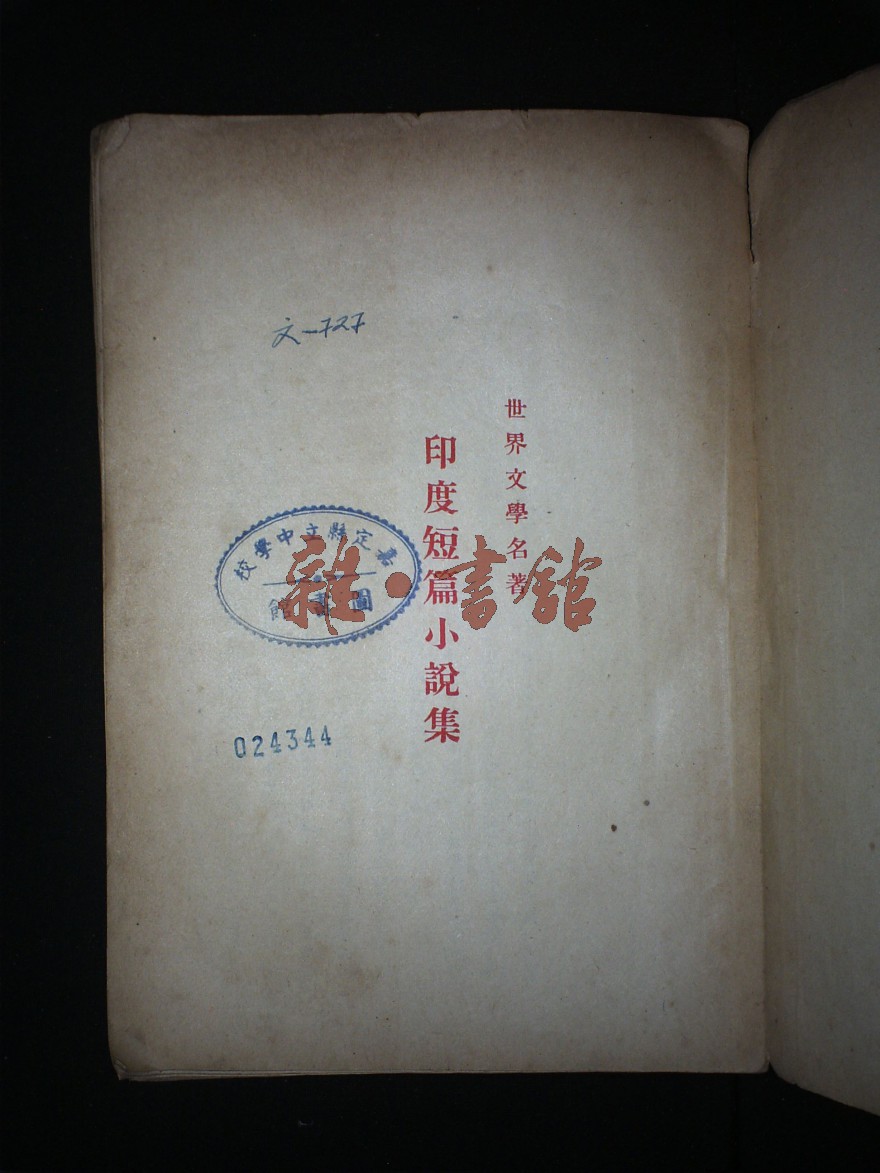 文-727
世界文學名著
印度短篇小說集
嘉定縣立中學校
圖書館
024344
雜·書館